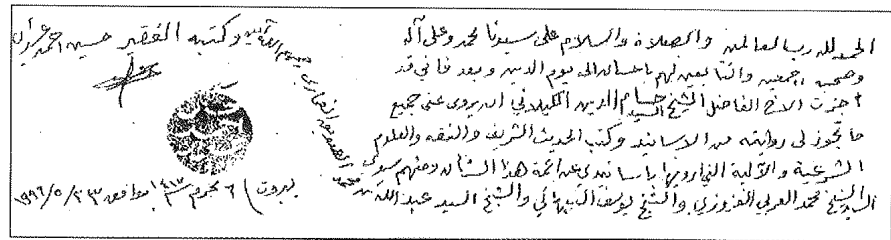 الحمد لله رب العالمين والصلاة والسلام على سيدنا محمد وعلى آله
وصحبه اجمعين والتابعين لهم باحسان الى يوم الدين وبعد فاني قد
اجزت الاخ الفاضل الشيخ السيد حسام الدين الكيلاني ان يروي عني جميع
ما تجوز لي روايته من الاسانيد وكتب الحديث الشريف والفقه والعلوم
الشرعية والآلية التي ارويها باسانيدي عن ائمة هذا الشأن ومنهم سيدي
السيد الشيخ محمد العربي العزوزي والشيخ يوسف النبهاني والشيخ السيد عبد الله
بن محمد الصديق الغماري رحمهم الله آمين
وكتبه الفقير حسين احمد عسيران
بيروت ٦ محرم ١٤١٧ موافق ٢٣/٥/١٩٩٦